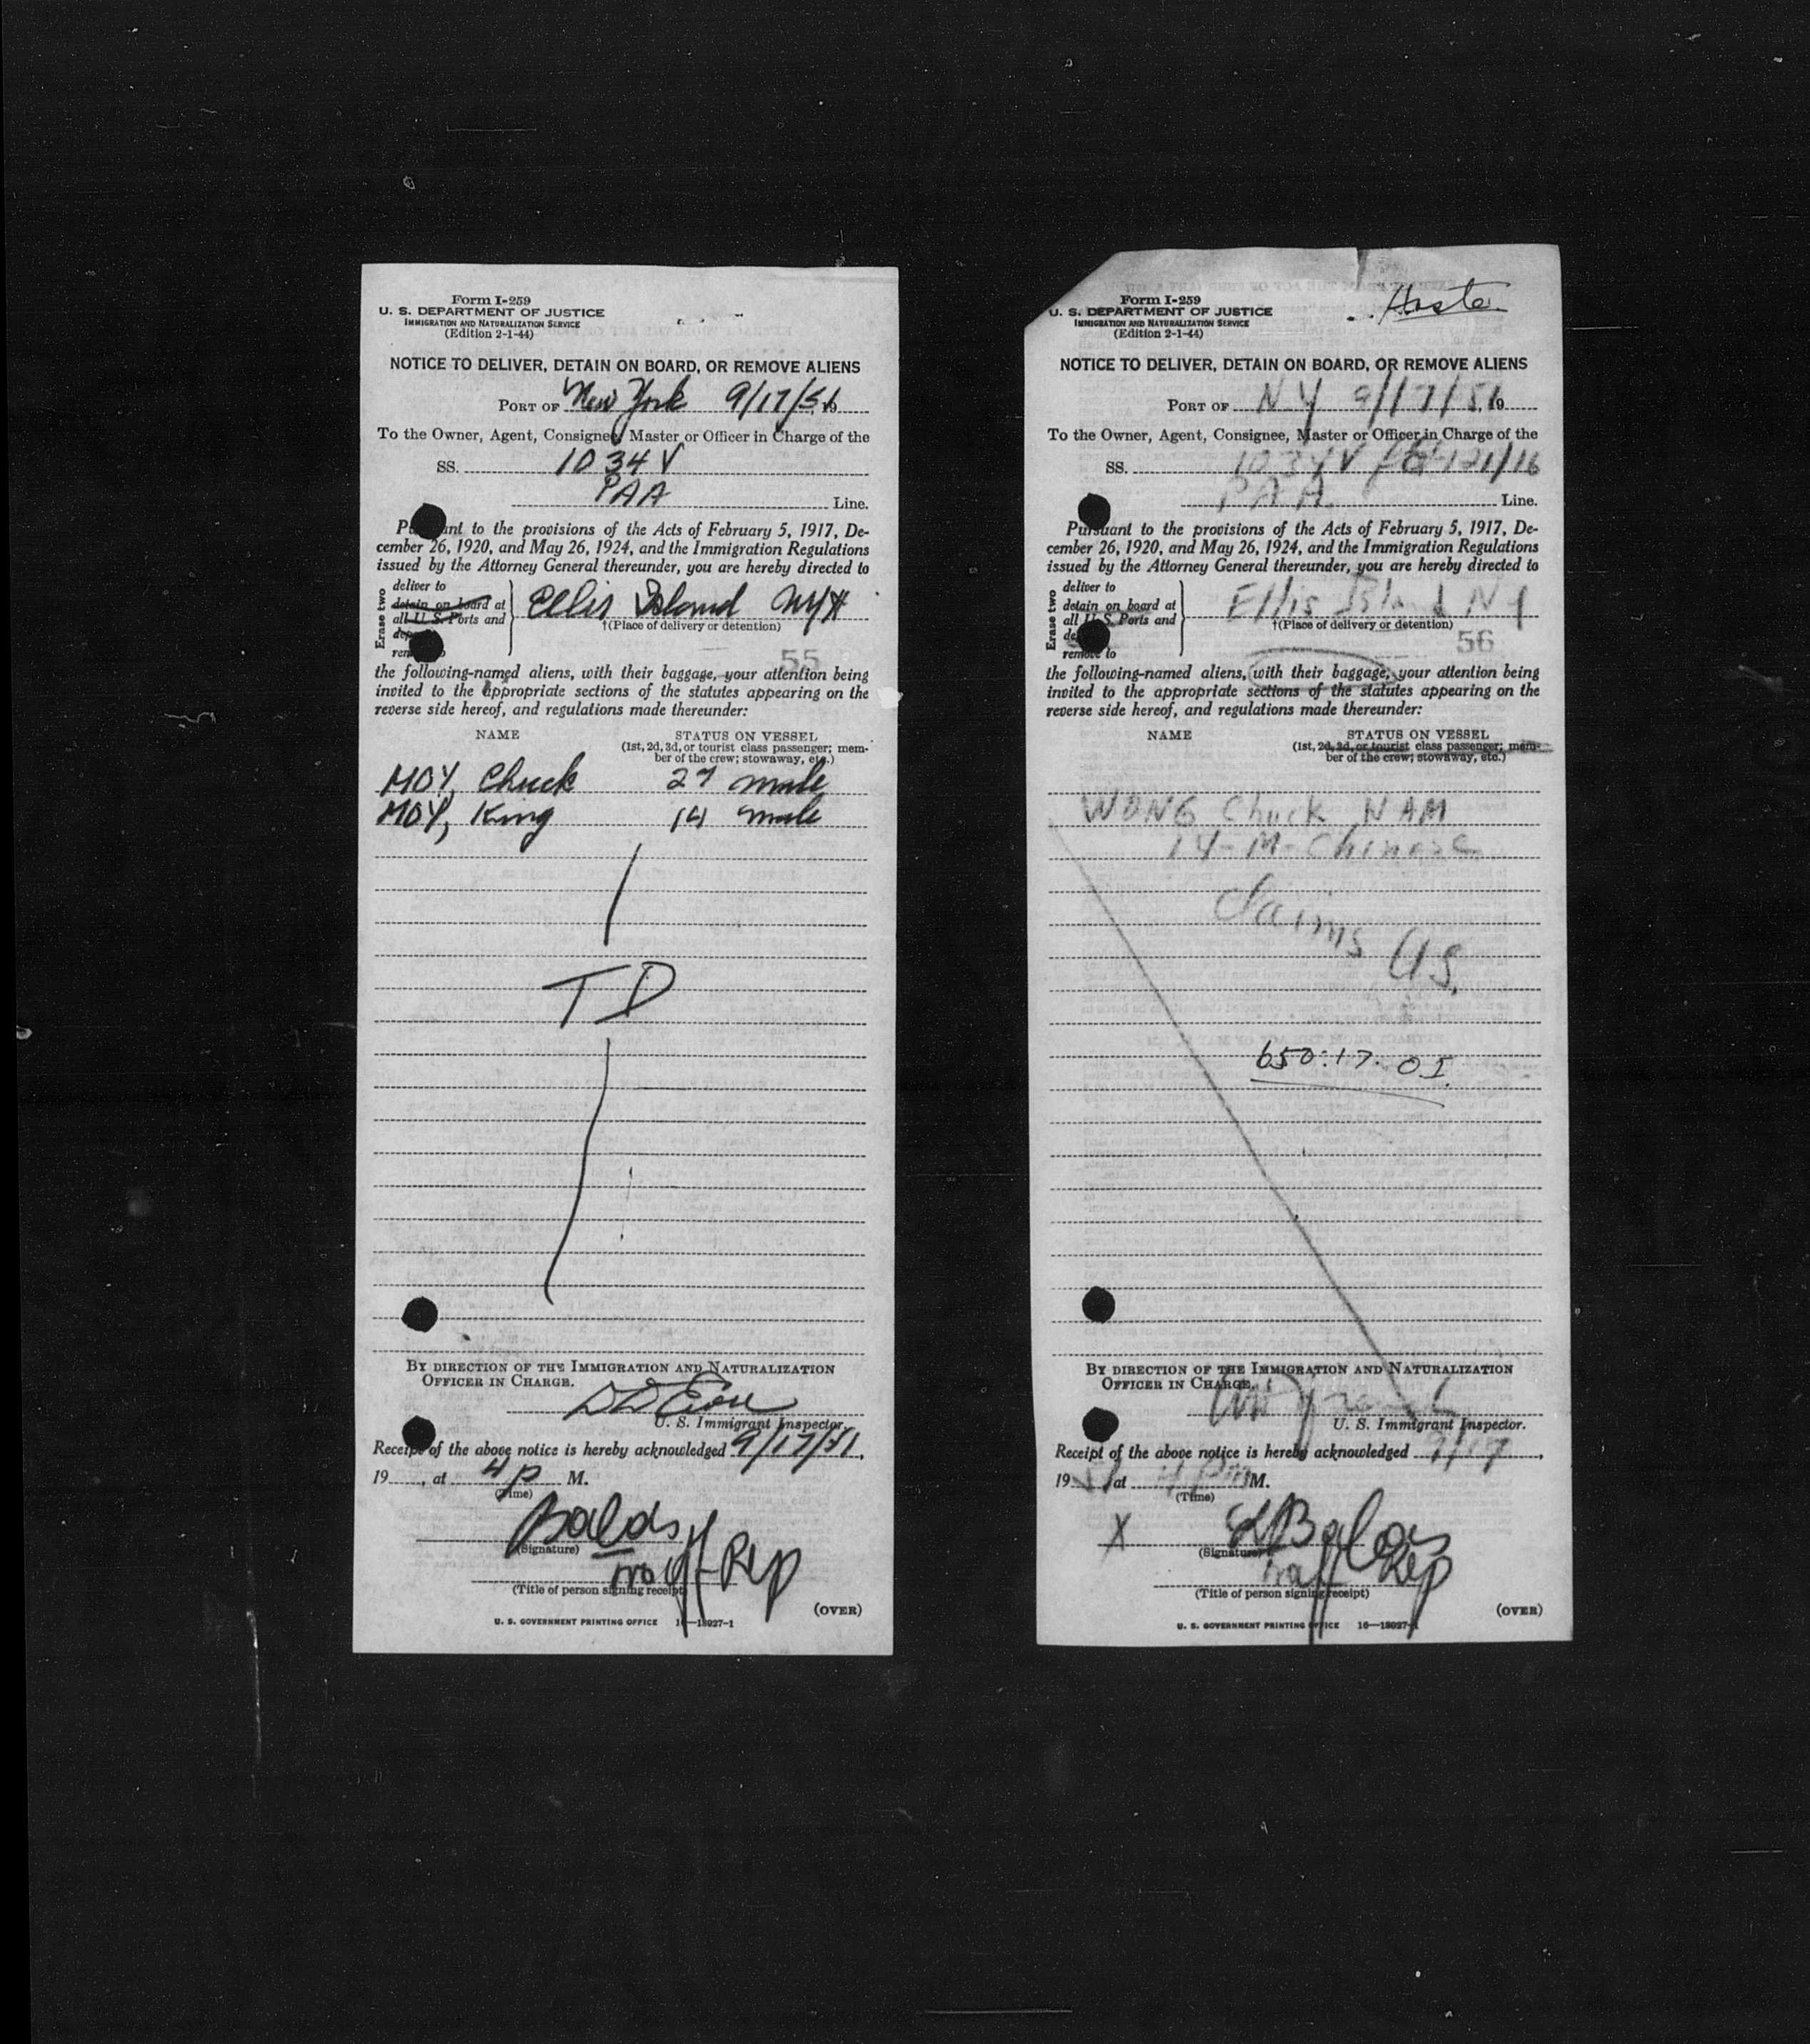 Form I-259
U. S. DEPARTMENT OF JUSTICE
IMMIGRATION AND NATURALIZATION SERVICE
(Edition 2-1-44)
NOTICE TO DELIVER, DETAIN ON BOARD, OR REMOVE ALIENS
PORT OF New York 9/17/51, 19
To the Owner, Agent, Consignee, Master or Officer in Charge of the
SS. 1034 V
PAA Line.
Pursuant to the provisions of the Acts of February 5, 1917, De-
cember 26, 1920, and May 26, 1924, and the Immigration Regulations
issued by the Attorney General thereunder, you are hereby directed to
Erase two
deliver to
detain on board at
all U. S. Ports and
remove to
Ellis Island
†(Place of delivery or detention)
55
the following-named aliens, with their baggage, your attention being
invited to the appropriate sections of the statutes appearing on the
reverse side hereof, and regulations made thereunder:
NAME STATUS ON VESSEL
(1st, 2d, 3d, or tourist class passenger; mem-
ber of the crew; stowaway, etc.)
MOY, Chuck 27 male
MOY, King 14 male
TD
BY DIRECTION OF THE IMMIGRATION AND NATURALIZATION
OFFICER IN CHARGE.
U. S. Immigrant Inspector.
Receipt of the above notice is hereby acknowledged 9/17/51,
19, at 4 P M.
(Time)
(Signature)
Traff Rep
(Title of person signing receipt)
(OVER)
U. S. GOVERNMENT PRINTING OFFICE 16—18027-1
Form I-259
U. S. DEPARTMENT OF JUSTICE
IMMIGRATION AND NATURALIZATION SERVICE
(Edition 2-1-44)
NOTICE TO DELIVER, DETAIN ON BOARD, OR REMOVE ALIENS
PORT OF N.Y 9/17/51, 19
To the Owner, Agent, Consignee, Master or Officer in Charge of the
SS. 1034 V
PAA Line.
Pursuant to the provisions of the Acts of February 5, 1917, De-
cember 26, 1920, and May 26, 1924, and the Immigration Regulations
issued by the Attorney General thereunder, you are hereby directed to
Erase two
deliver to
detain on board at
all U. S. Ports and
remove to
Ellis Island NY
†(Place of delivery or detention)
56
the following-named aliens, with their baggage, your attention being
invited to the appropriate sections of the statutes appearing on the
reverse side hereof, and regulations made thereunder:
NAME STATUS ON VESSEL
(1st, 2d, 3d, or tourist class passenger; mem-
ber of the crew; stowaway, etc.)
WONG Chuck NAM
14-M-Chinese
Claims US.
650:17. OI.
BY DIRECTION OF THE IMMIGRATION AND NATURALIZATION
OFFICER IN CHARGE.
U. S. Immigrant Inspector.
Receipt of the above notice is hereby acknowledged 9/17,
1951 at 4 pm M.
(Time)
X
(Signature)
Traff Rep
(Title of person signing receipt)
(OVER)
U. S. GOVERNMENT PRINTING OFFICE 16—18027-1